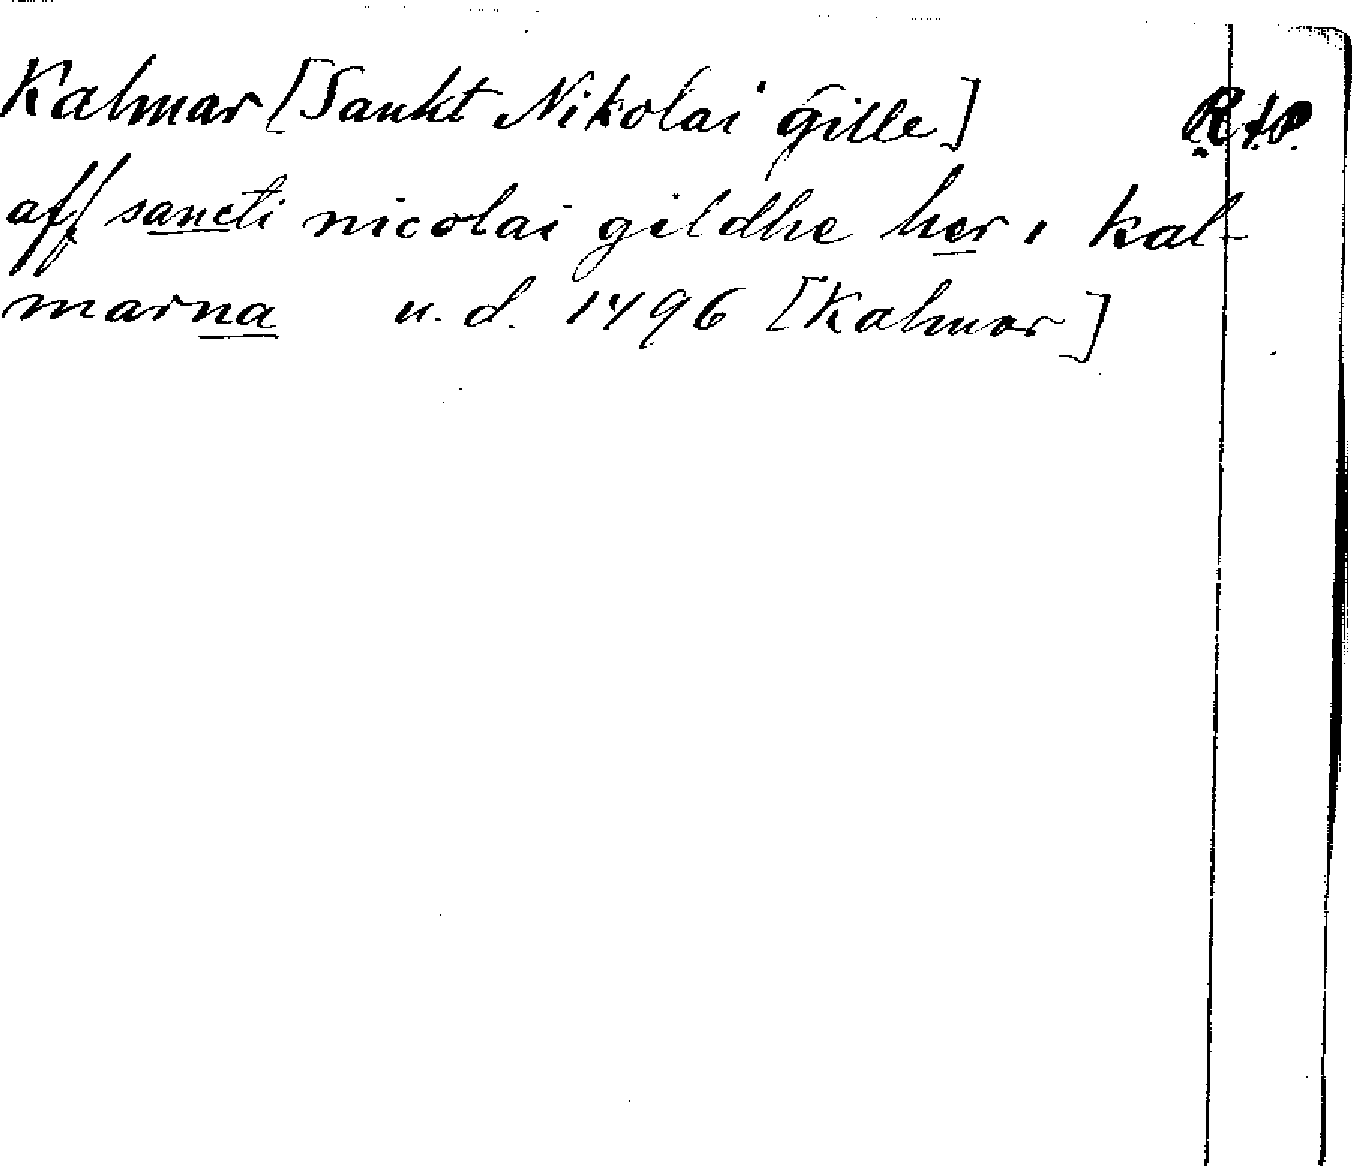 Kalmar [Sankt Nikolai Gille] RAP
aff sancti nicolai gildhe her i kal-
marna u. d. 1496 [Kalmar]